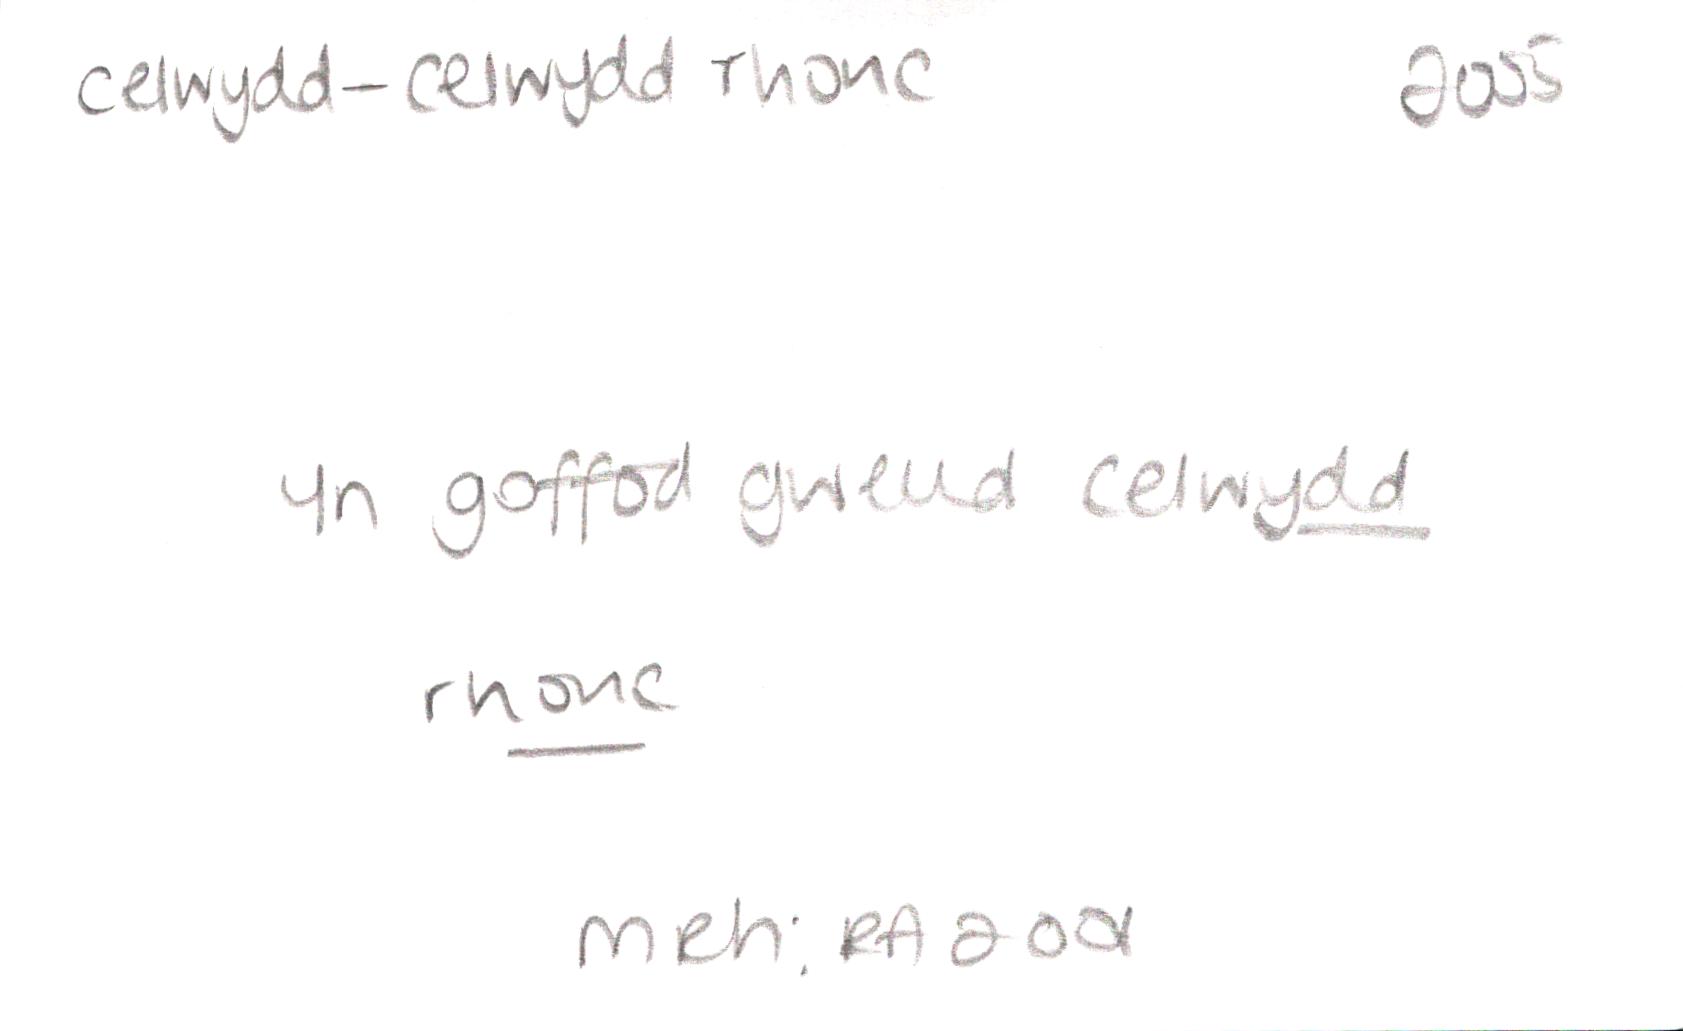 celwydd-celwydd rhonc 2055
yn goffod gweud celwydd
rhonc
Meh; RA 2001